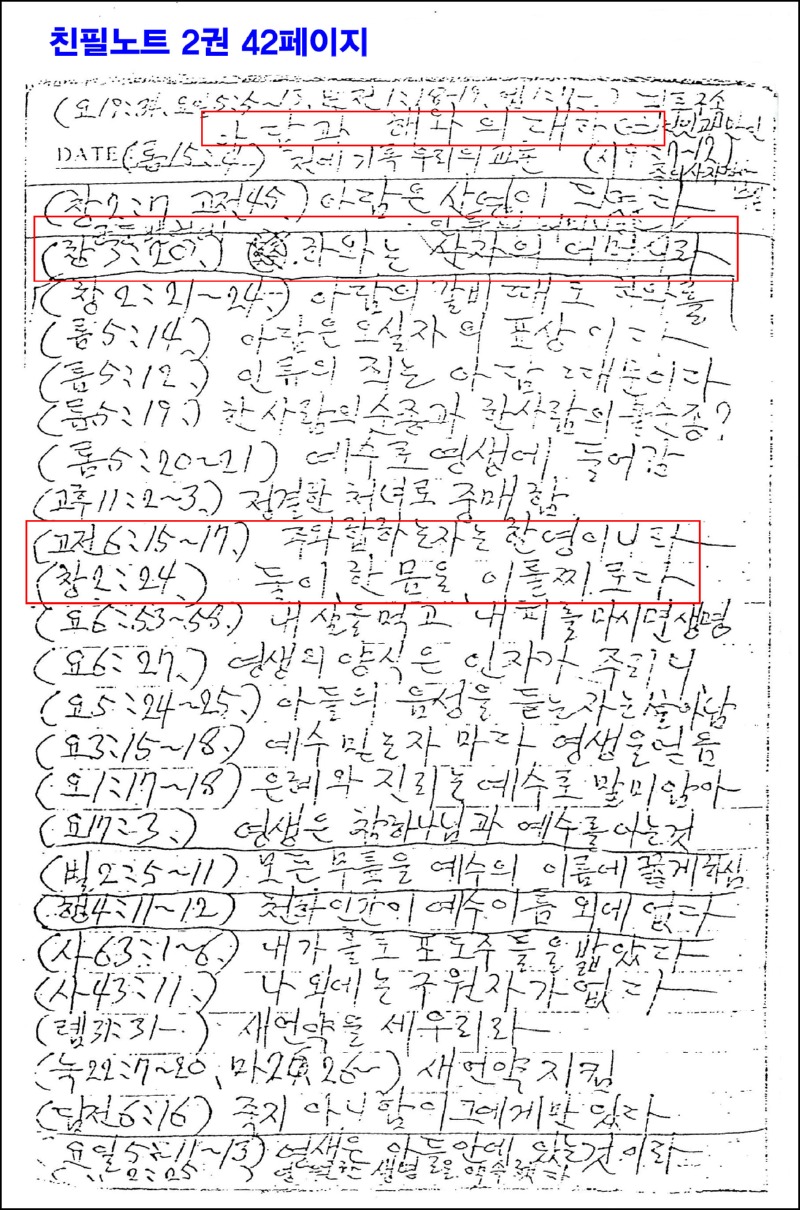 친필노트 2권 42페이지
(요19:34, 요일5:5~13,
아담과 해와의 대하여
DATE (롬15:4) 전에 기록 우리의 교훈
(창2:7 고전45,) 아담은 산영이 되엿다
(창3:20,) 하와는 산자의 어머니라
(창2:21~24,) 아담의 갈비때로
(롬5:14,) 아담은 오실자의 표상이다
(롬5:12,) 인류의 죄는 아담 때문이다
(롬5:19,) 한사람의순종과 한사람의불순종?
(롬5:20~21) 예수로 영생에 들어감
(고후11:2~3,) 정결한 처녀로 중매함
(고전6:15~17,) 주와합하는자는 한영이니다
(창2:24,) 둘이 한몸을 이룰찌로다
(요6:53~55,) 내살을먹고 내피를마시면생명
(요6:27,) 영생의양식은 인자가 주리니
(요5:24~25,) 아들의 음성을 듣는자는살아남
(요3:15~18,) 예수믿는자 마다 영생을얻음
(요1:17~18) 은혜와 진리는예수로 말미암아
(요17:3,) 영생은 참하나님과 예수를아는것
(빌2:5~11) 모든무릎을 예수의 이름에 꿇게하심
(행4:11~12) 천하인간이예수이름 외에없다
(사63:1~6,) 내가 홀로 포도주틀을밟았다
(사43:11,) 나 외에는구원자가없다
(렘31:31 ) 새언약을 세우리라
(눅22:7~20, 마26, 26~) 새언약지킴
(딤전6:16) 죽지 아니함이그에게만있다
요일5:11~13) 영생은 아들안에 있는것이라
2:25